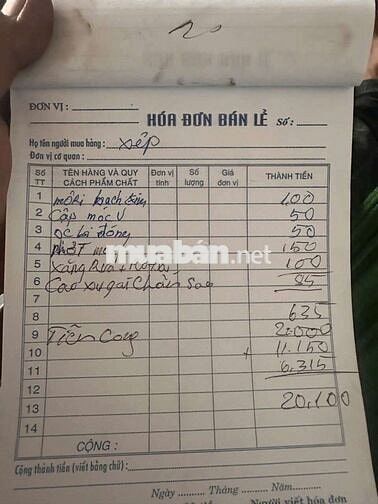 20
ĐƠN VỊ :
HÓA ĐƠN BÁN LẺ Số :
Họ tên người mua hàng : xếp
Đơn vị cơ quan :
Số TT TÊN HÀNG VÀ QUY CÁCH PHẨM CHẤT Đơn vị tính Số lượng Giá đơn vị THÀNH TIỀN
1 bạch tông 100
2 Cặp móc V 50
3 ọc bi đồng 50
4 NhớT 150
5 Xăng Rửa 100
6 Cao xu gai Chắn Sao 85
7
8 635
9 Tiền Công 2.000
10 + 11.150
11 6.315
12
13 20,100
14
CỘNG :
muaban.net
Cộng thành tiền (viết bằng chữ) :
Ngày Tháng Năm
Người viết hóa đơn